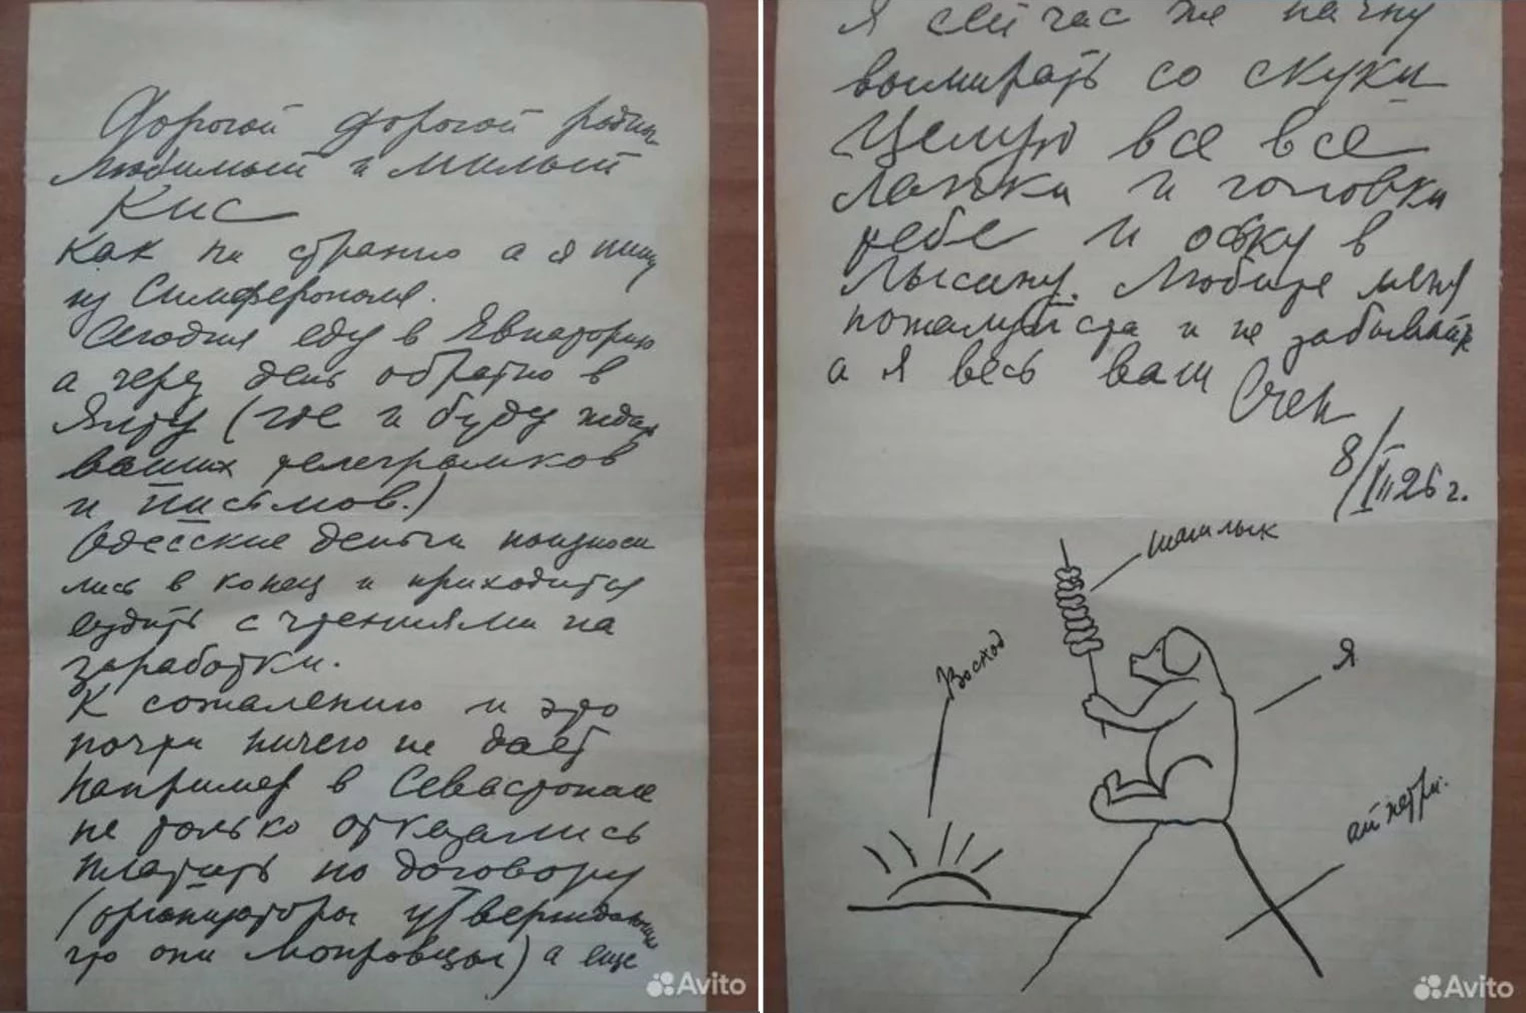 Дорогой дорогой родны
любимый и милый
Кис
Как ни странно а я пишу
из Симферополя.
Сегодня еду в Евпаторию
а через день обратно в
Ялту (где и буду ждать
ваших телеграмков
и письмов.)
Одесские деньги поизноси
лись в конец и приходится
ездить с чтениями на
заработки.
К сожалению и это
почти ничего не даёт
Например в Севастополе
не только отказались
платить по договору
(организаторы утверждающие
что они мопровцы) а еще
Avito
Я сейчас же начну
вымирать со скуки
Целую все все
лапки и головки
тебе и оську в
Лысину. Любите меня
пожалуйста и не забывайте
а я весь ваш Счен
8/VII 26 г.
шашлык
Восход
Я
ай петри.
Avito